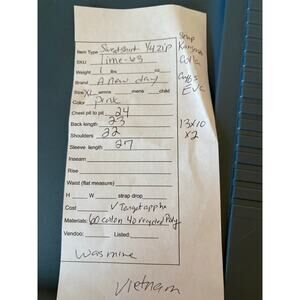 Item Type Sweatshirt 1/4 zip
SKU Time-63
Weight 1 lbs oz
Brand A new day
Size XL wmns mens child
Color Pink
Chest pit to pit 24
Back length 23
Shoulders 22
Sleeve length 27
Inseam
Rise
Waist (flat measure)
H W strap drop
Cost ✓ Target app hx
Materials: 60 cotton 40 recycled Poly
Vendoo: Listed:
Was mine
Vietnam
Snap
Kangaroo
Collar
Cuffs
EUC
13x10
x2